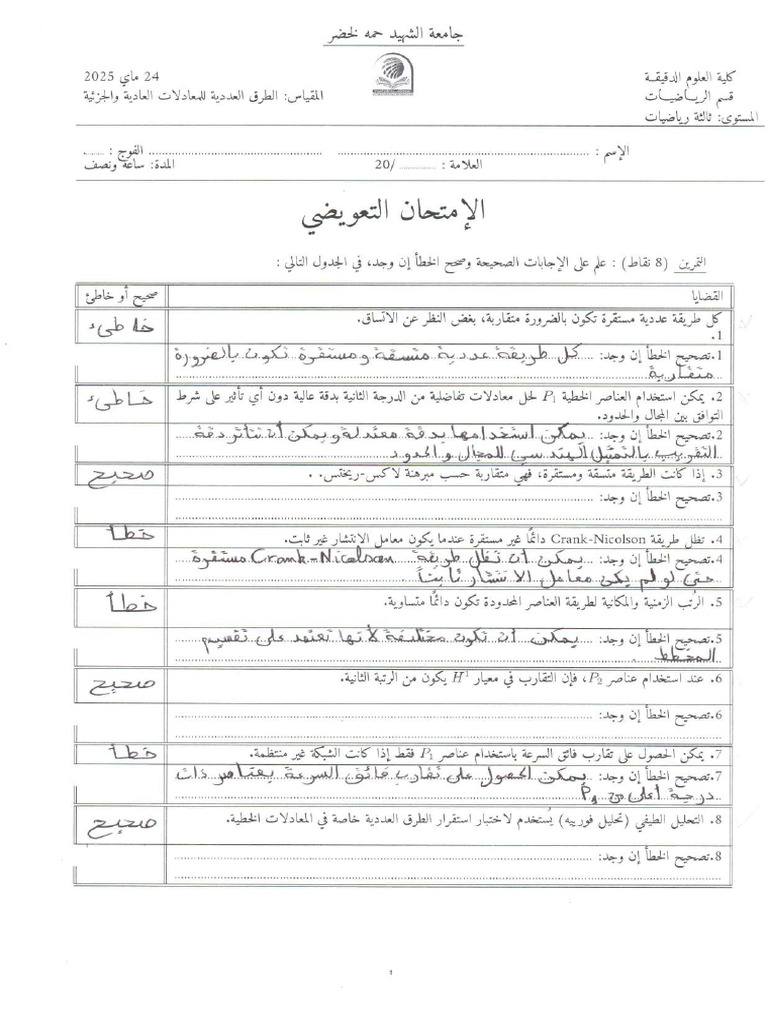 جامعة الشهيد حمه لخضر
كلية العلوم الدقيقة
24 ماي 2025
قسم الرياضيات
المقياس: الطرق العددية للمعادلات العادية والجزئية
المستوى: ثالثة رياضيات
الإسم : ........ الفوج : ........
العلامة : ........ /20
المدة: ساعة ونصف
الإمتحان التعويضي
التمرين (8 نقاط) : علم على الإجابات الصحيحة وصحح الخطأ إن وجد، في الجدول التالي :
القضايا
صحيح أو خاطئ
كل طريقة عددية مستقرة تكون بالضرورة متقاربة، بغض النظر عن الاتساق.
1.
خاطىء
1.تصحيح الخطأ إن وجد: كل طريقة عددية متسقة ومستقرة تكون بالضرورة
متقاربة
2. يمكن استخدام العناصر الخطية P1 لحل معادلات تفاضلية من الدرجة الثانية بدقة عالية دون أي تأثير على شرط
التوافق بين المجال والحدود.
خاطىء
2.تصحيح الخطأ إن وجد: يمكن استخدامها بدقة معتدلة ويمكن أن تتأثر دقة
التقريب بالتمثيل الهندسي للمجال والحدود
3. إذا كانت الطريقة متسقة ومستقرة، فهي متقاربة حسب مبرهنة لاكس-ريختس. .
صحيح
3.تصحيح الخطأ إن وجد:
4. تظل طريقة Crank-Nicolson دائمًا غير مستقرة عندما يكون معامل الانتشار غير ثابت.
خطأ
4.تصحيح الخطأ إن وجد: يمكن ان تظل طريقة Crank-Nicolson مستقرة
حتى لو لم يكن معامل الانتشار ثابتاً
5. الرُتب الزمنية والمكانية لطريقة العناصر المحدودة تكون دائمًا متساوية.
خطأ
5.تصحيح الخطأ إن وجد: يمكن أن تكون مختلفة لأنها تعتمد على تقسيم
المخطط.
6. عند استخدام عناصر P2، فإن التقارب في معيار H1 يكون من الرتبة الثانية.
صحيح
6.تصحيح الخطأ إن وجد:
7. يمكن الحصول على تقارب فائق السرعة باستخدام عناصر P1 فقط إذا كانت الشبكة غير منتظمة.
خطأ
7.تصحيح الخطأ إن وجد: يمكن الحصول على تقارب فائق السرعة بعناصر ذات
درجة أعلى من P1
8. التحليل الطيفي (تحليل فورييه) يُستخدم لاختبار استقرار الطرق العددية خاصة في المعادلات الخطية.
صحيح
8.تصحيح الخطأ إن وجد:
1